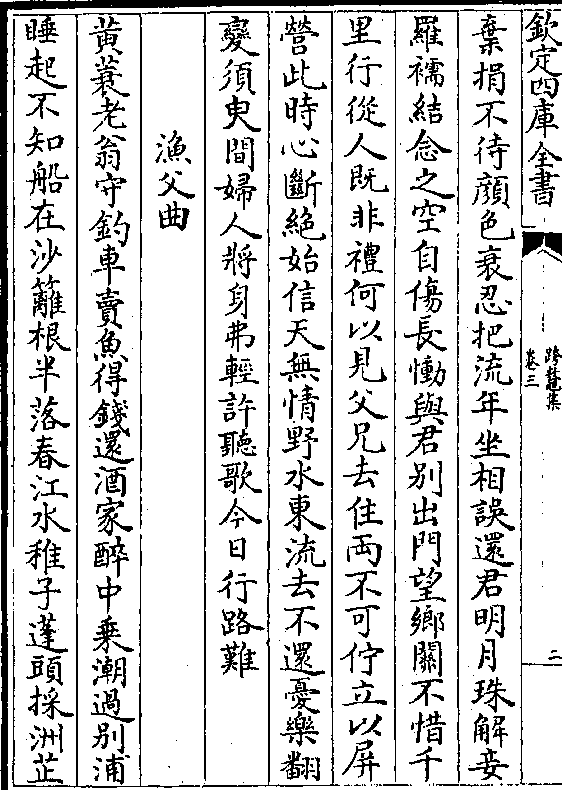 欽定四庫全書
跨鼇集
卷三
二
棄捐不待顔色衰忍把流年坐相誤還君明月珠解妾
羅襦結念之空自傷長慟與君别出門望鄉關不惜千
里行從人既非禮何以見父兄去住兩不可佇立以屏
營此時心斷絶始信天無情野水東流去不還憂樂翻
變須臾間婦人將身弗輕許聽歌今日行路難
漁父曲
黄蓑老翁守釣車賣魚得錢還酒家醉中乗潮過别浦
睡起不知船在沙籬根半落春江水稚子蓬頭採洲芷